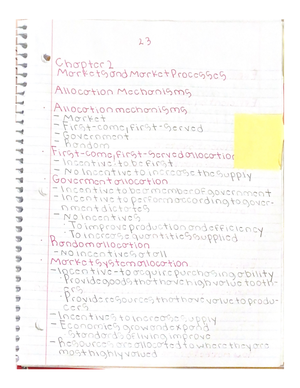 23
Chapter 2
Markets and Market Processes
Allocation Mechanisms
Allocation mechanisms
- Market
- First-come, first-served
- Government
- Random
First-come, first-served allocation
- Incentive to be first
- No incentive to increase the supply
Government allocation
- Incentive to be a member of government
- Incentive to perform according to gover-
nment dictates
- No incentives
To improve production and efficiency
To increase quantities supplied
Random allocation
- No incentives at all
Market system allocation
- Incentive - to acquire purchasing ability
Provide goods that have high value to oth-
ers
- Provide resources that have value to produ-
cers
- Incentives to increase supply
- Economies grow and expand
Standards of living improve
- Resources are allocated to where they are
most highly valued